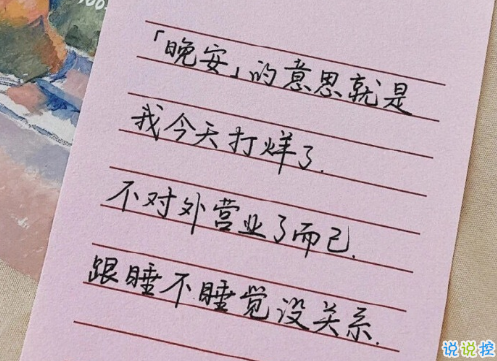 「晚安」的意思就是
我今天打烊了.
不对外营业了而已.
跟睡不睡觉没关系.
说说控